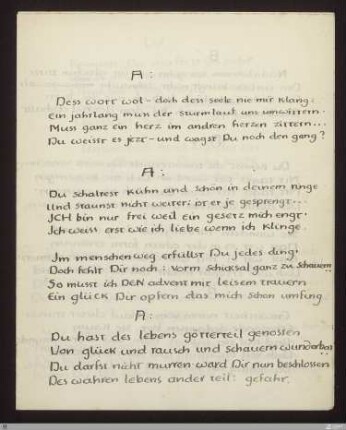 A:
Dess wort wol – doch dess seele nie mir klang:
Ein jahrlang nun der sturmlaut uns umwittern.
Muss ganz ein herz im andren herzen zittern...
Du weisst es jezt – und wagst Du noch den gang?
A:
Du schaltest kühn und schön in deinem ringe
Und staunst nicht weiter: ob er je gesprengt...
ICH bin nur frei weil ein gesetz mich engt.
Ich weiss erst wie ich liebe wenn ich klinge.
Im menschenweg erfüllst Du jedes ding:
Doch fehlt Dir noch: vorm schicksal ganz zu schauern
So musst ich DEN advent mit leisem trauern
Ein glück Dir opfern das mich schon umfing.
A:
Du hast des lebens götterteil genossen
Von glück und rausch und schauern wunderbar
Du darfst nicht murren ward Dir nun beschlossen
Des wahren lebens ander teil: gefahr.